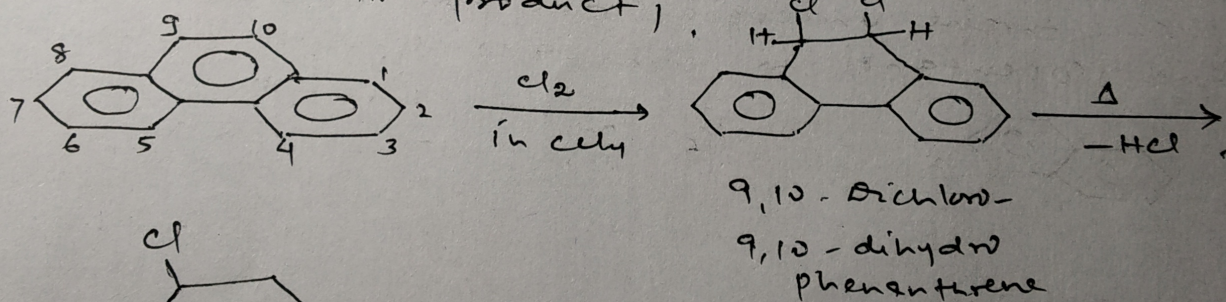 product,
Cl Cl
9 10
H H
8 1
7 2
6 5 4 3
Cl2
in CCl4
Δ
-HCl
9,10-Dichloro-
9,10-dihydro
phenanthrene
Cl